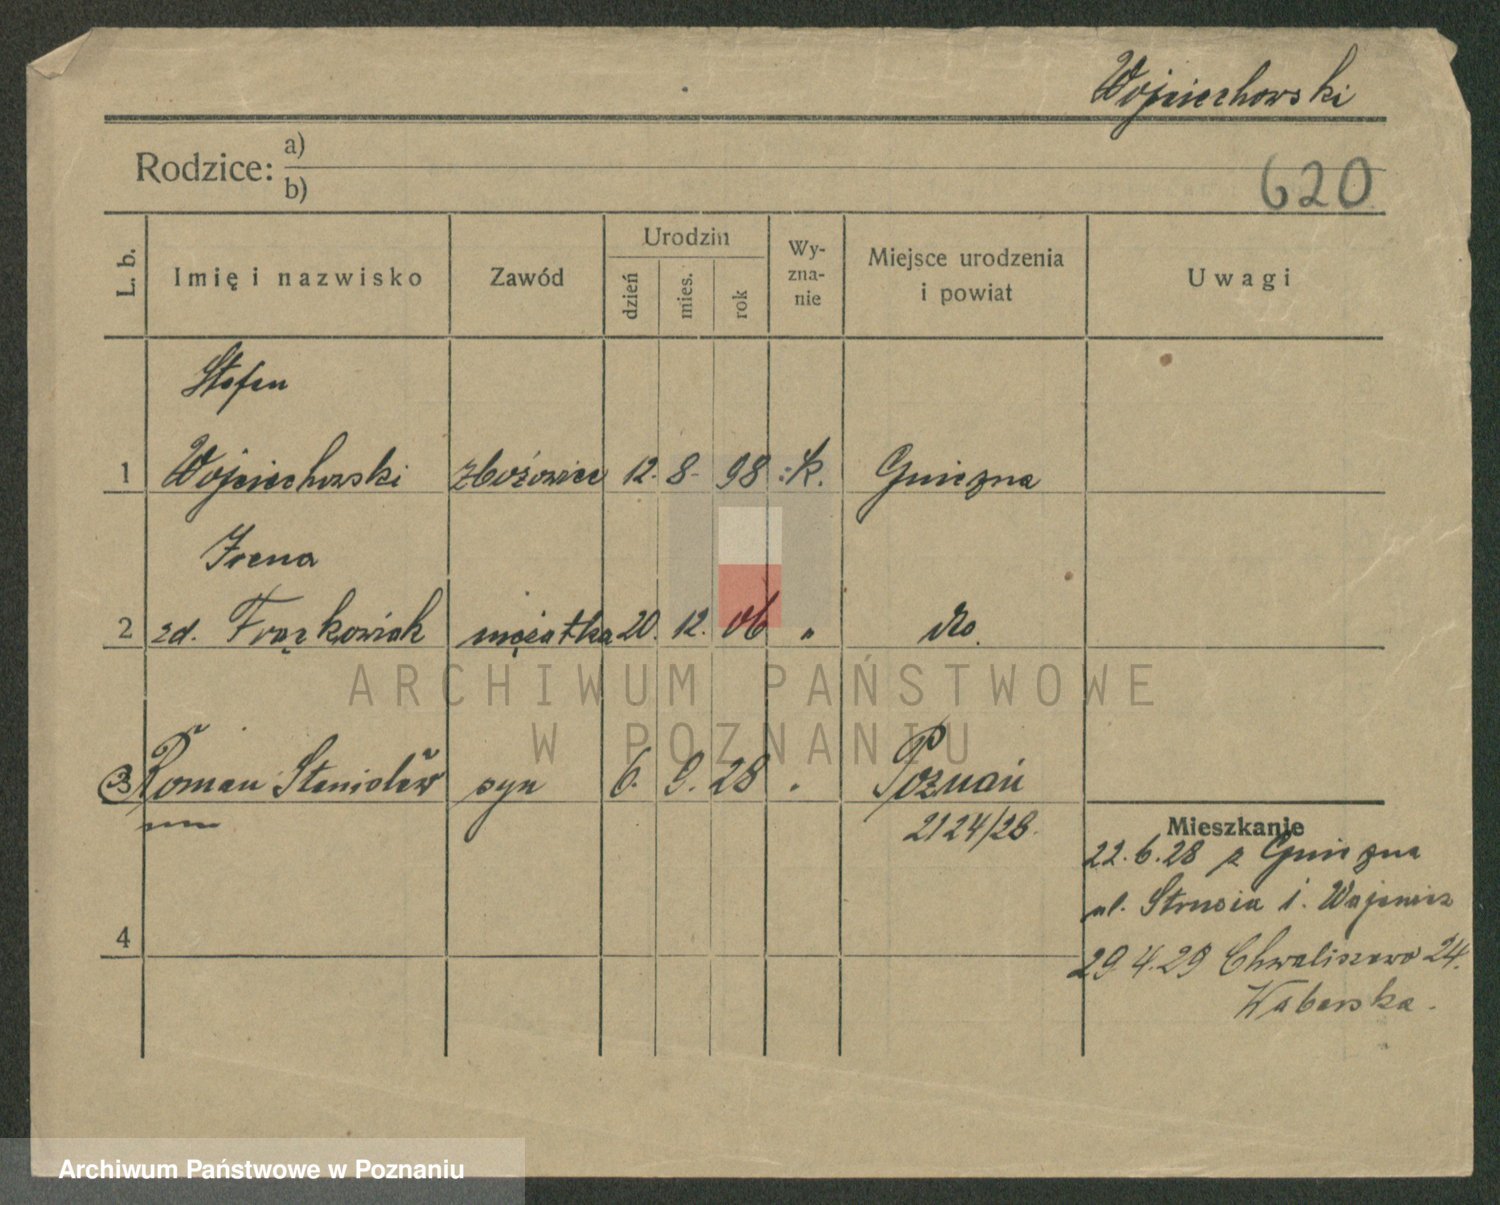 Wojciechowski
Rodzice: a)
b)
620
L. b.
Imię i nazwisko
Zawód
Urodzin
dzień
mies.
rok
Wy-
zna-
nie
Miejsce urodzenia
i powiat
Uwagi
Stefan
1 Wojciechowski zbożowiec 12. 8. 98 r.k. Gniezna
Irena
2 zd. Frąckowiak mężatka 20. 12. 06 "
3 Roman Stanisław syn 6. 9. 28 " Poznań
2124/28.
Mieszkanie
22.6.28 z Gniezna
ul. Strusia 1.
4
29.4.29 Chwaliszewo 24.
Waberska.
ARCHIWUM PAŃSTWOWE
W POZNANIU
Archiwum Państwowe w Poznaniu